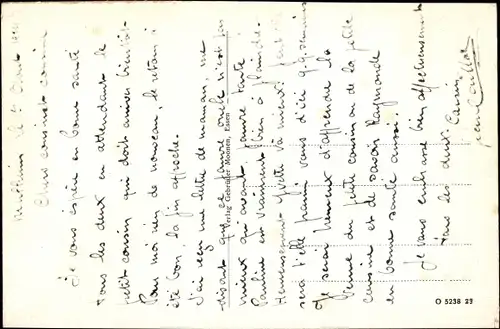 le 5
Chers cousin et cousine
Je vous espère en bonne santé
tous les deux en attendant le
petit cousin qui doit arriver bientôt
Pour moi rien de nouveau, le retour a
été bon, la fin approche.
J'ai reçu une lettre de maman, me
disant que ce pauvre oncle n'est pas
mieux qu'avant, pauvre tante
Pauline est vraiment bien à plaindre.
Heureusement Yvette va mieux, peut être
sera t'elle parmi vous d'ici q.q. semaines
Je serai heureux d'apprendre la
venue du petit cousin ou de la petite
cousine et de savoir Raymonde
en bonne santé aussi.
Je vous embrasse bien affectueusement
tous les deux. Cousin
Verlag Gebrüder Monien, Essen
O 5238 22